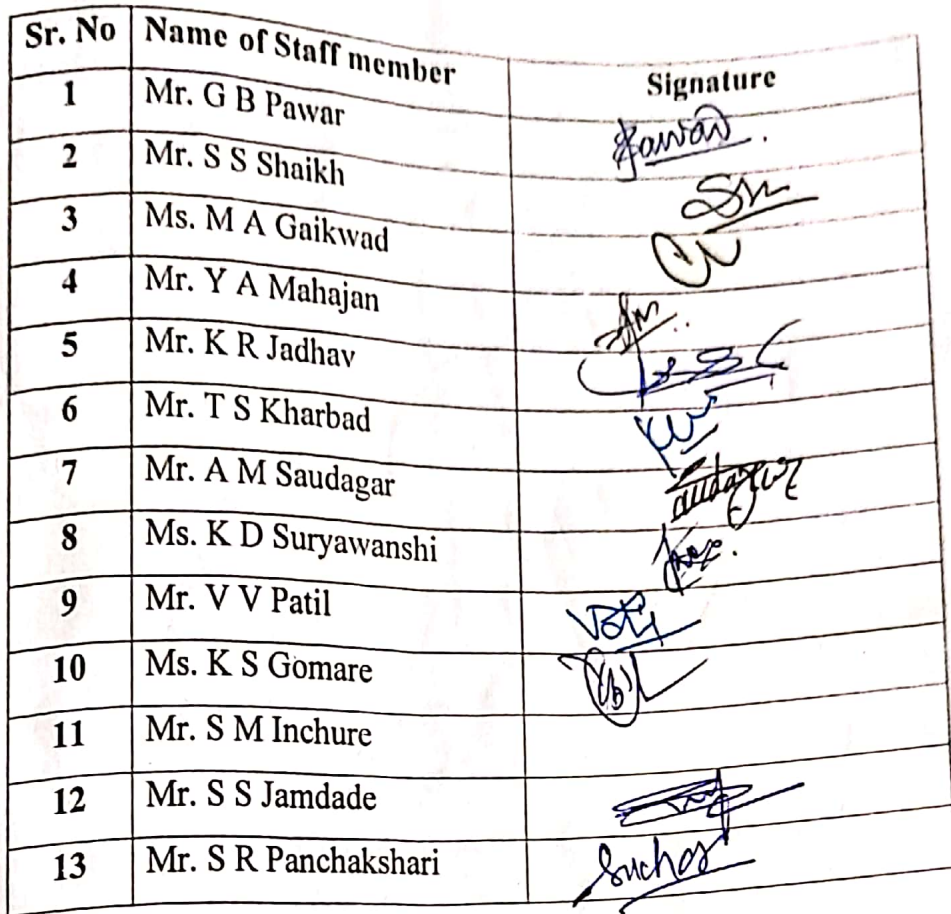 Sr. No Name of Staff member Signature
1 Mr. G B Pawar
2 Mr. S S Shaikh
3 Ms. M A Gaikwad
4 Mr. Y A Mahajan
5 Mr. K R Jadhav
6 Mr. T S Kharbad
7 Mr. A M Saudagar
8 Ms. K D Suryawanshi
9 Mr. V V Patil
10 Ms. K S Gomare
11 Mr. S M Inchure
12 Mr. S S Jamdade
13 Mr. S R Panchakshari